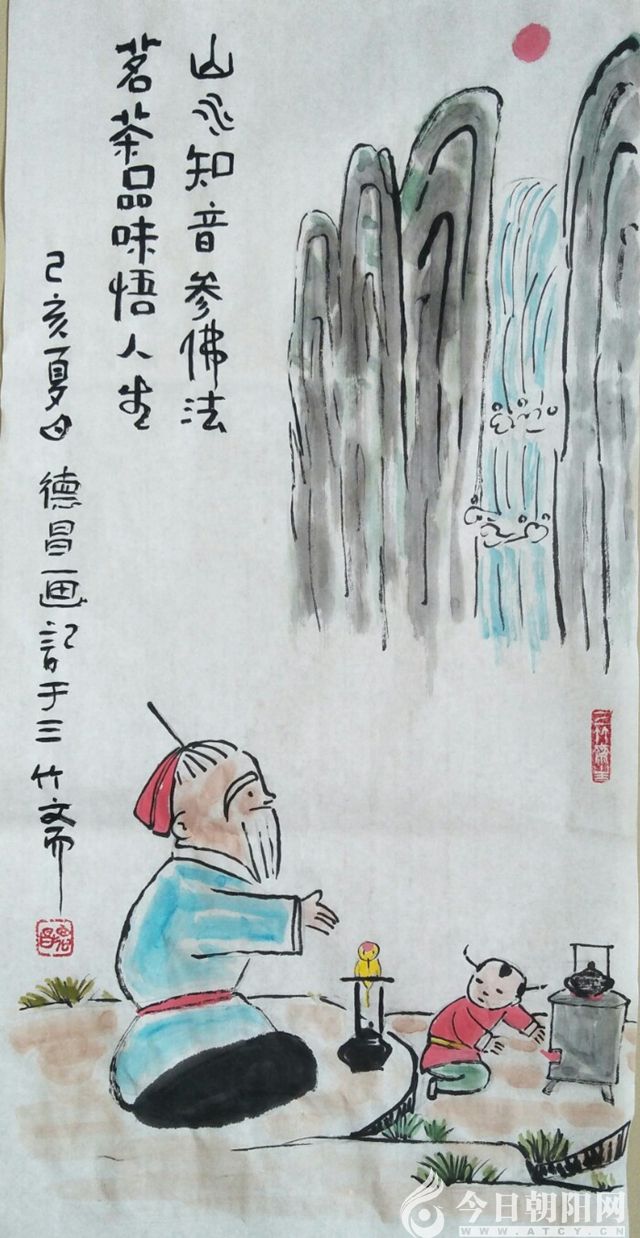 山水知音参佛法
茗茶品味悟人生
己亥夏日 德昌画記于三竹斋
今日朝阳网
WWW.ATCY.CN